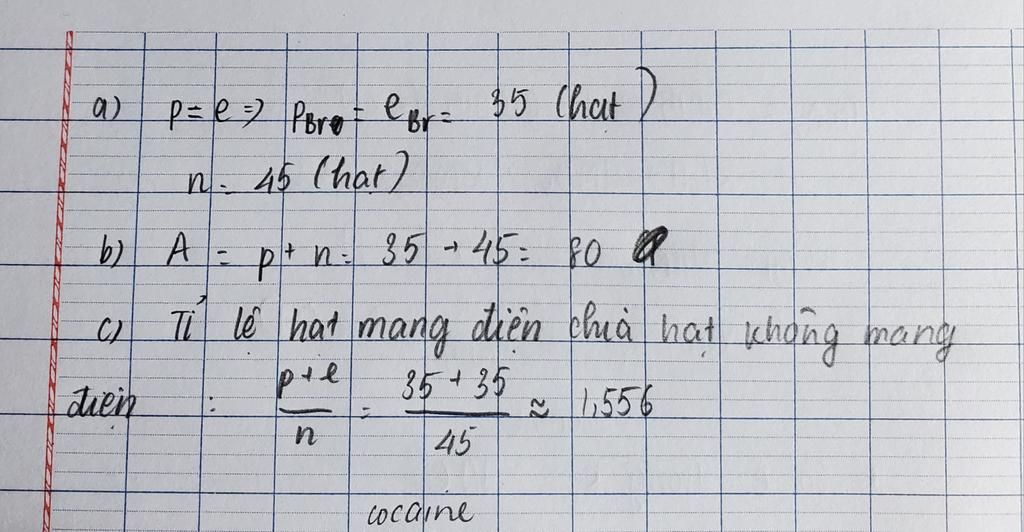 a) p = e => pBr = eBr = 35 (hạt)
n = 45 (hạt)
b) A = p + n = 35 + 45 = 80
c) Tỉ lệ hạt mang điện chia hạt không mang
điện : p + e / n = 35 + 35 / 45 ≈ 1,556
cocaine